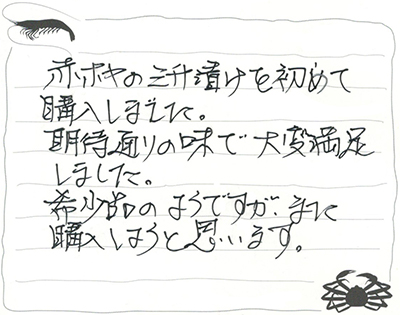 赤ホヤの三升漬けを初めて
購入しました。
期待通りの味で大変満足
しました。
希少品のようですが、また
購入しようと思います。